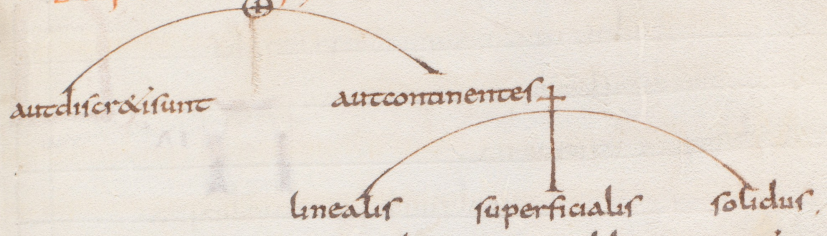 aut discreti sunt
aut continentes
linealis superficialis solidus.